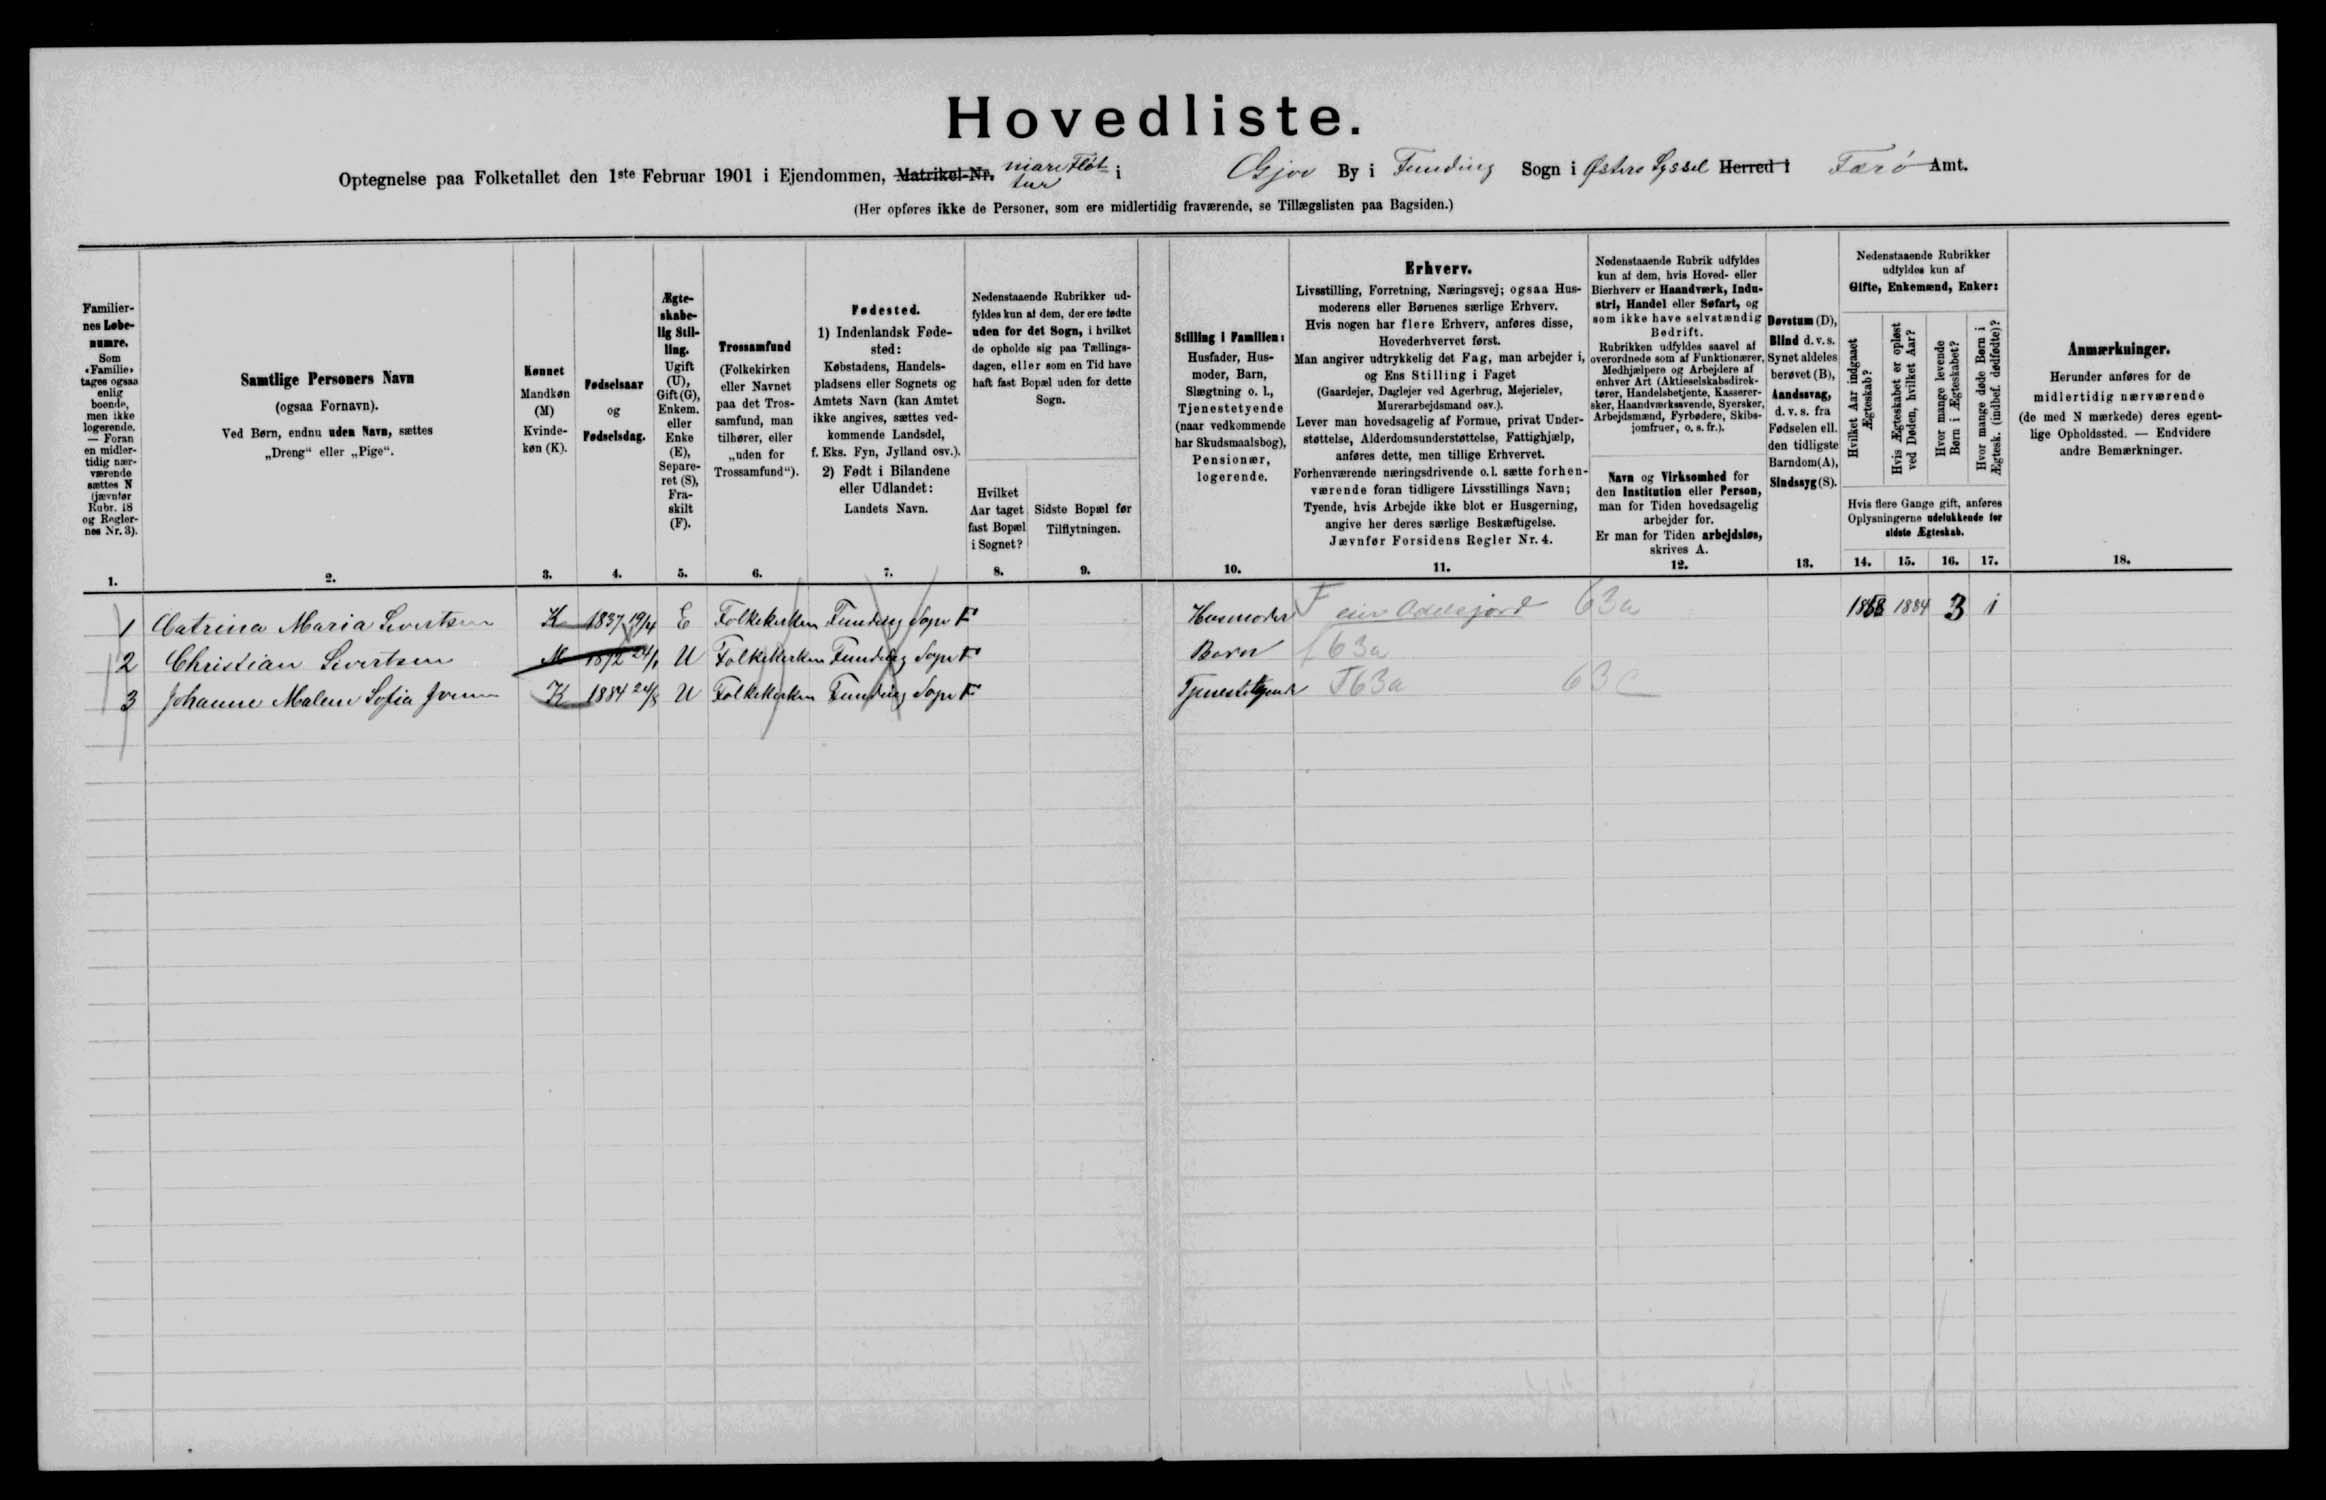 Hovedliste.
Optegnelse paa Folketallet den 1ste Februar 1901 i Ejendommen, Matrikel-Nr. i Gjov By i Funding Sogn i Østerø Syssel Herred i Færö Amt.
(Her opføres ikke de Personer, som ere midlertidig fraværende, se Tillægslisten paa Bagsiden.)
Familier-
nes Løbe-
numre.
Som
«Familie»
tages ogsaa
enlig
boende,
men ikke
logerende.
— Foran
en midler-
tidig nær-
værende
sættes N
(jævnfør
Rubr. 18
og Regler-
nes Nr. 3).
1.
Samtlige Personers Navn
(ogsaa Fornavn).
Ved Børn, endnu uden Navn, sættes
„Dreng“ eller „Pige“.
2.
Kønnet
Mandkøn
(M)
Kvinde-
køn (K).
3.
Fødselsaar
og
Fødselsdag.
4.
Ægte-
skabe-
lig Stil-
ling.
Ugift
(U),
Gift (G),
Enkem.
eller
Enke
(E),
Separe-
ret (S),
Fra-
skilt
(F).
5.
Trossamfund
(Folkekirken
eller Navnet
paa det Tros-
samfund, man
tilhører, eller
„uden for
Trossamfund“).
6.
Fødested.
1) Indenlandsk Føde-
sted:
Købstadens, Handels-
pladsens eller Sognets og
Amtets Navn (kan Amtet
ikke angives, sættes ved-
kommende Landsdel,
f. Eks. Fyn, Jylland osv.).
2) Født i Bilandene
eller Udlandet:
Landets Navn.
7.
Nedenstaaende Rubrikker ud-
fyldes kun af dem, der ere fødte
uden for det Sogn, i hvilket
de opholde sig paa Tællings-
dagen, eller som en Tid have
haft fast Bopæl uden for dette
Sogn.
Hvilket
Aar taget
fast Bopæl
i Sognet?
8.
Sidste Bopæl før
Tilflytningen.
9.
Stilling i Familien:
Husfader, Hus-
moder, Barn,
Slægtning o. l.,
Tjenestetyende
(naar vedkommende
har Skudsmaalsbog),
Pensionær,
logerende.
10.
Erhverv.
Livsstilling, Forretning, Næringsvej; ogsaa Hus-
moderens eller Børnenes særlige Erhverv.
Hvis nogen har flere Erhverv, anføres disse,
Hovederhvervet først.
Man angiver udtrykkelig det Fag, man arbejder i,
og Ens Stilling i Faget
(Gaardejer, Daglejer ved Agerbrug, Mejerielev,
Murerarbejdsmand osv.).
Lever man hovedsagelig af Formue, privat Under-
støttelse, Alderdomsunderstøttelse, Fattighjælp,
anføres dette, men tillige Erhvervet.
Forhenværende næringsdrivende o. l. sætte forhen-
værende foran tidligere Livsstillings Navn;
Tyende, hvis Arbejde ikke blot er Husgerning,
angive her deres særlige Beskæftigelse.
Jævnfør Forsidens Regler Nr. 4.
11.
Nedenstaaende Rubrik udfyldes
kun af dem, hvis Hoved- eller
Bierhverv er Haandværk, Indu-
stri, Handel eller Søfart, og
som ikke have selvstændig
Bedrift.
Rubrikken udfyldes saavel af
overordnede som af Funktionærer,
Medhjælpere og Arbejdere af
enhver Art (Aktieselskabsdirek-
tører, Handelsbetjente, Kasserer-
sker, Haandværkssvende, Syersker,
Arbejdsmænd, Fyrbødere, Skibs-
jomfruer, o. s. fr.).
Navn og Virksomhed for
den Institution eller Person,
man for Tiden hovedsagelig
arbejder for.
Er man for Tiden arbejdsløs,
skrives A.
12.
Døvstum (D),
Blind d. v. s.
Synet aldeles
berøvet (B),
Aandssvag,
d. v. s. fra
Fødselen ell.
den tidligste
Barndom (A),
Sindssyg (S).
13.
Nedenstaaende Rubrikker
udfyldes kun af
Gifte, Enkemænd, Enker:
Hvilket Aar indgaaet
Ægteskab?
Hvis Ægteskabet er opløst
ved Døden, hvilket Aar?
Hvor mange levende
Børn i Ægteskabet?
Hvor mange døde Børn i
Ægtesk. (indbef. dødfødte)?
Hvis flere Gange gift, anføres
Oplysningerne udelukkende for
sidste Ægteskab.
14. 15. 16. 17.
Anmærkninger.
Herunder anføres for de
midlertidig nærværende
(de med N mærkede) deres egent-
lige Opholdssted. — Endvidere
andre Bemærkninger.
18.
1 Catrina Maria Sivertsen K 1837 19/4 E Folkekirken Funding Sogn F Husmoder F 63a 1868 1884 3 1
2 Christian Sivertsen M 1872 24/1 U Folkekirken Funding Sogn F Barn f 63a
3 Johanne Malene Sofia K 1884 24/5 U Folkekirken Funding Sogn F Tjenestetyende T63a 63c